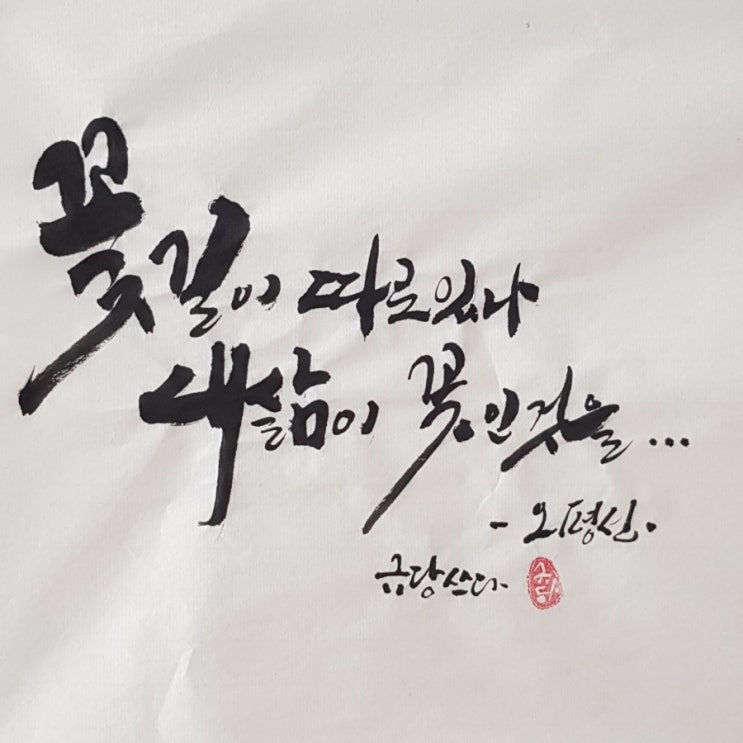 꽃길이 따로있나
내삶이 꽃인것을...
- 오평선.
금당쓰다.